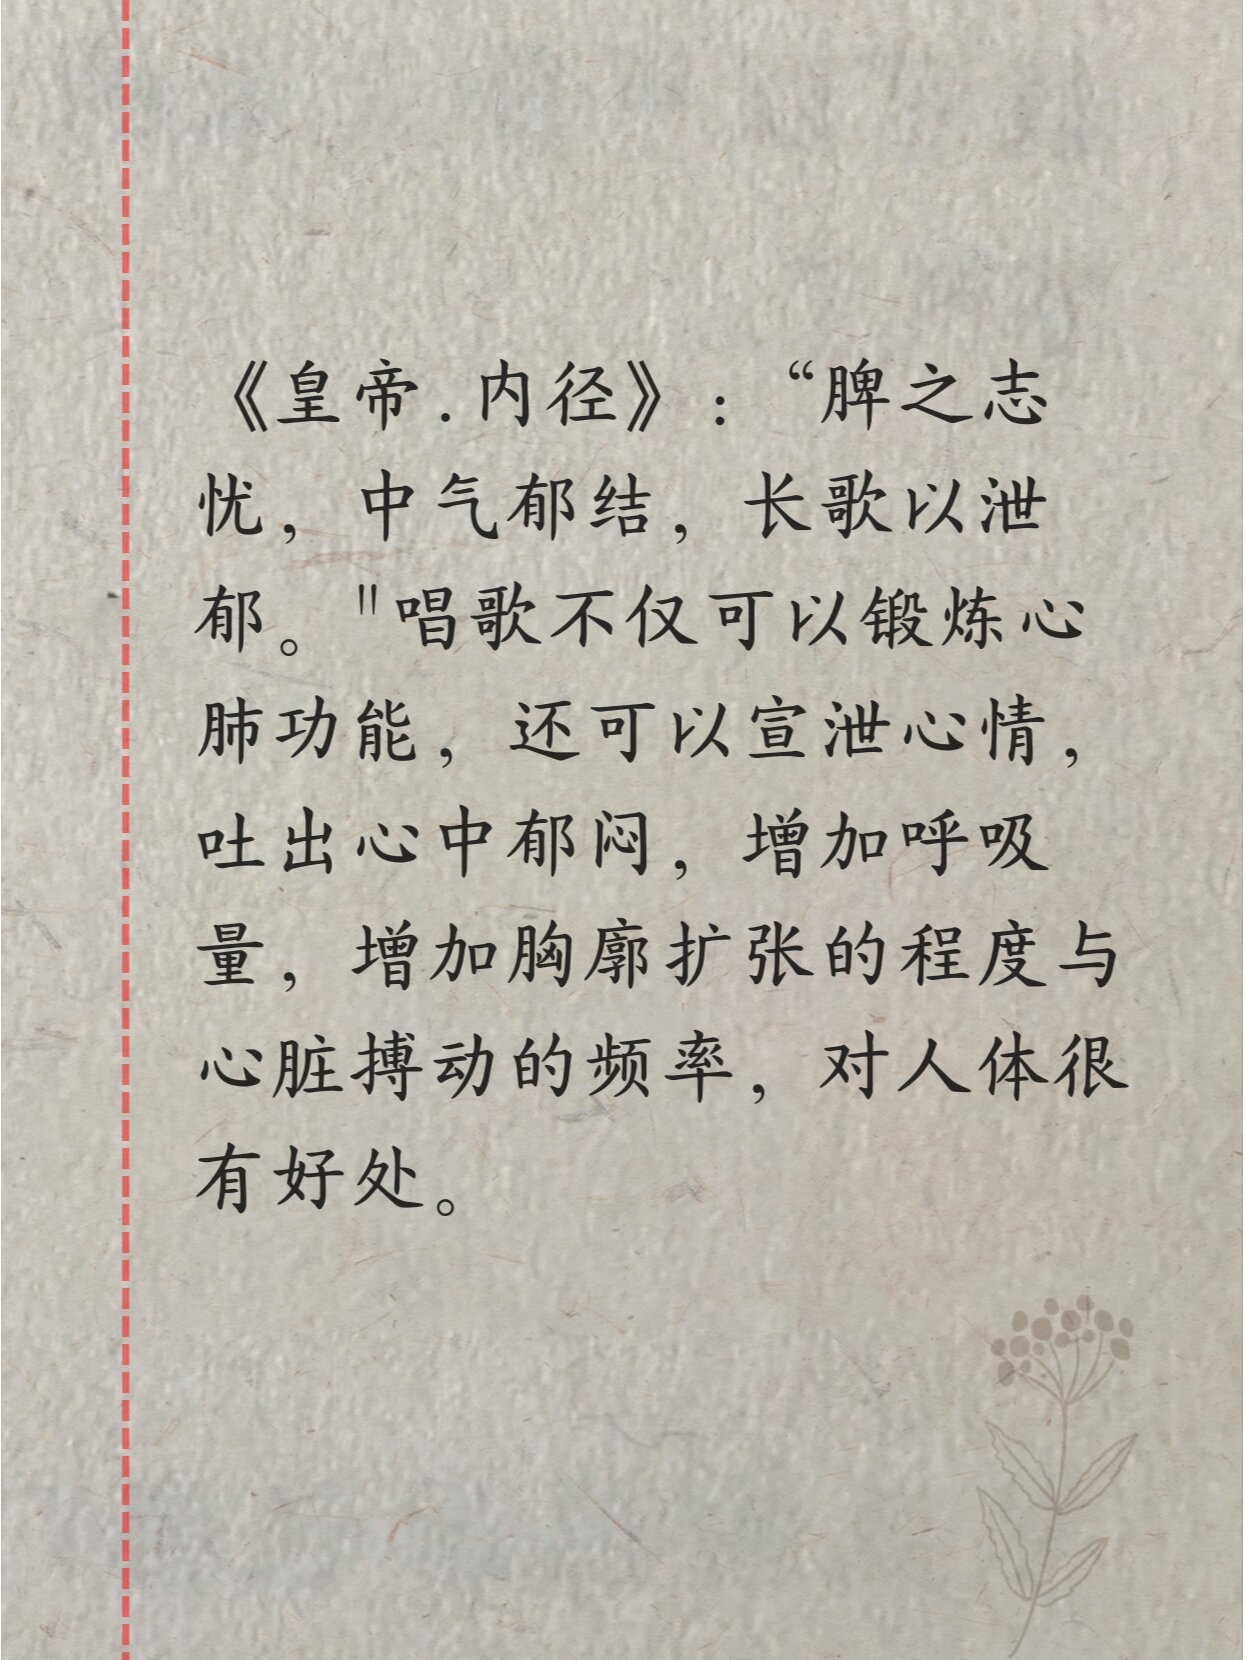 《皇帝.内径》：“脾之志
忧，中气郁结，长歌以泄
郁。"唱歌不仅可以锻炼心
肺功能，还可以宣泄心情，
吐出心中郁闷，增加呼吸
量，增加胸廓扩张的程度与
心脏搏动的频率，对人体很
有好处。